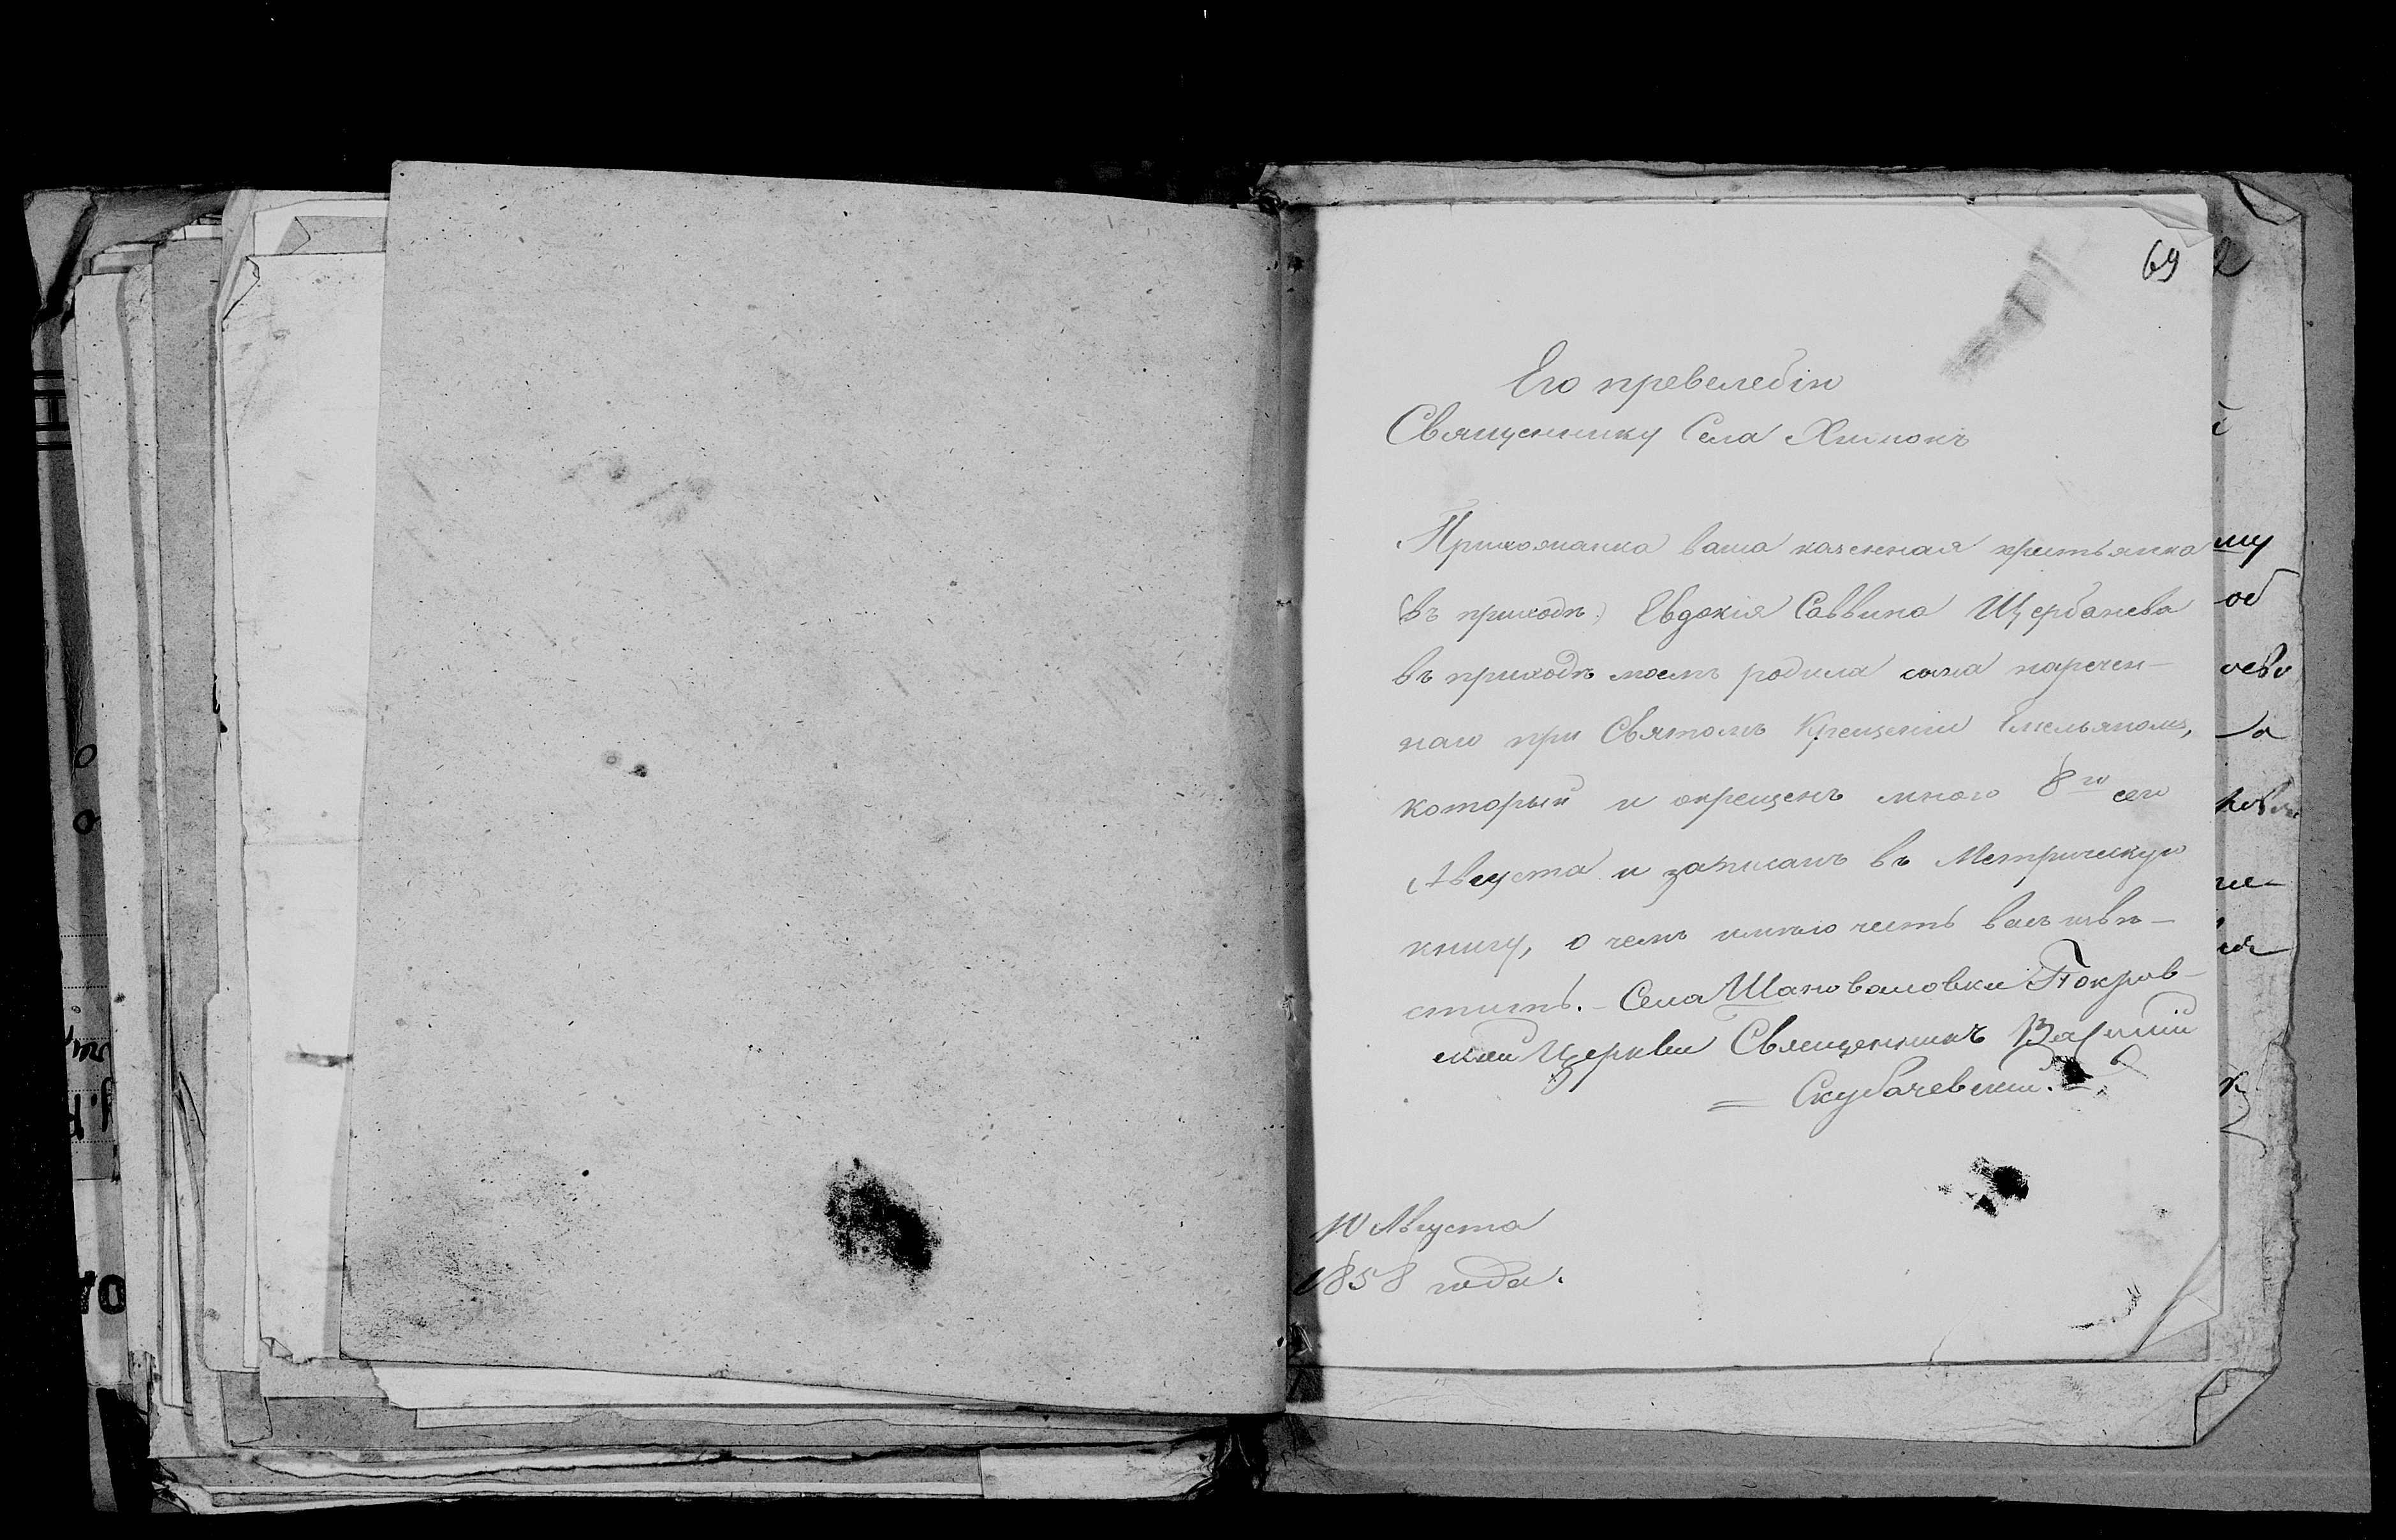 69
Его превелебію
Священнику Села Химокъ
Прихожанка ваша казенная кретьянка
(въ приходѣ) Евдокія Саввина Щербанева
въ приходѣ моемъ родила сына наречен-
наго при Святомъ Крещеніи Емельяномъ,
который и окрещенъ мною 8го сего
Августа и записанъ въ Метрическую
книгу, о чемъ имѣю честь васъ извѣ-
стить. - Села Шаповаловки Покров-
ской Церкви Священникъ Василій
= Скубачевскій.
10 Августа
1858 года.